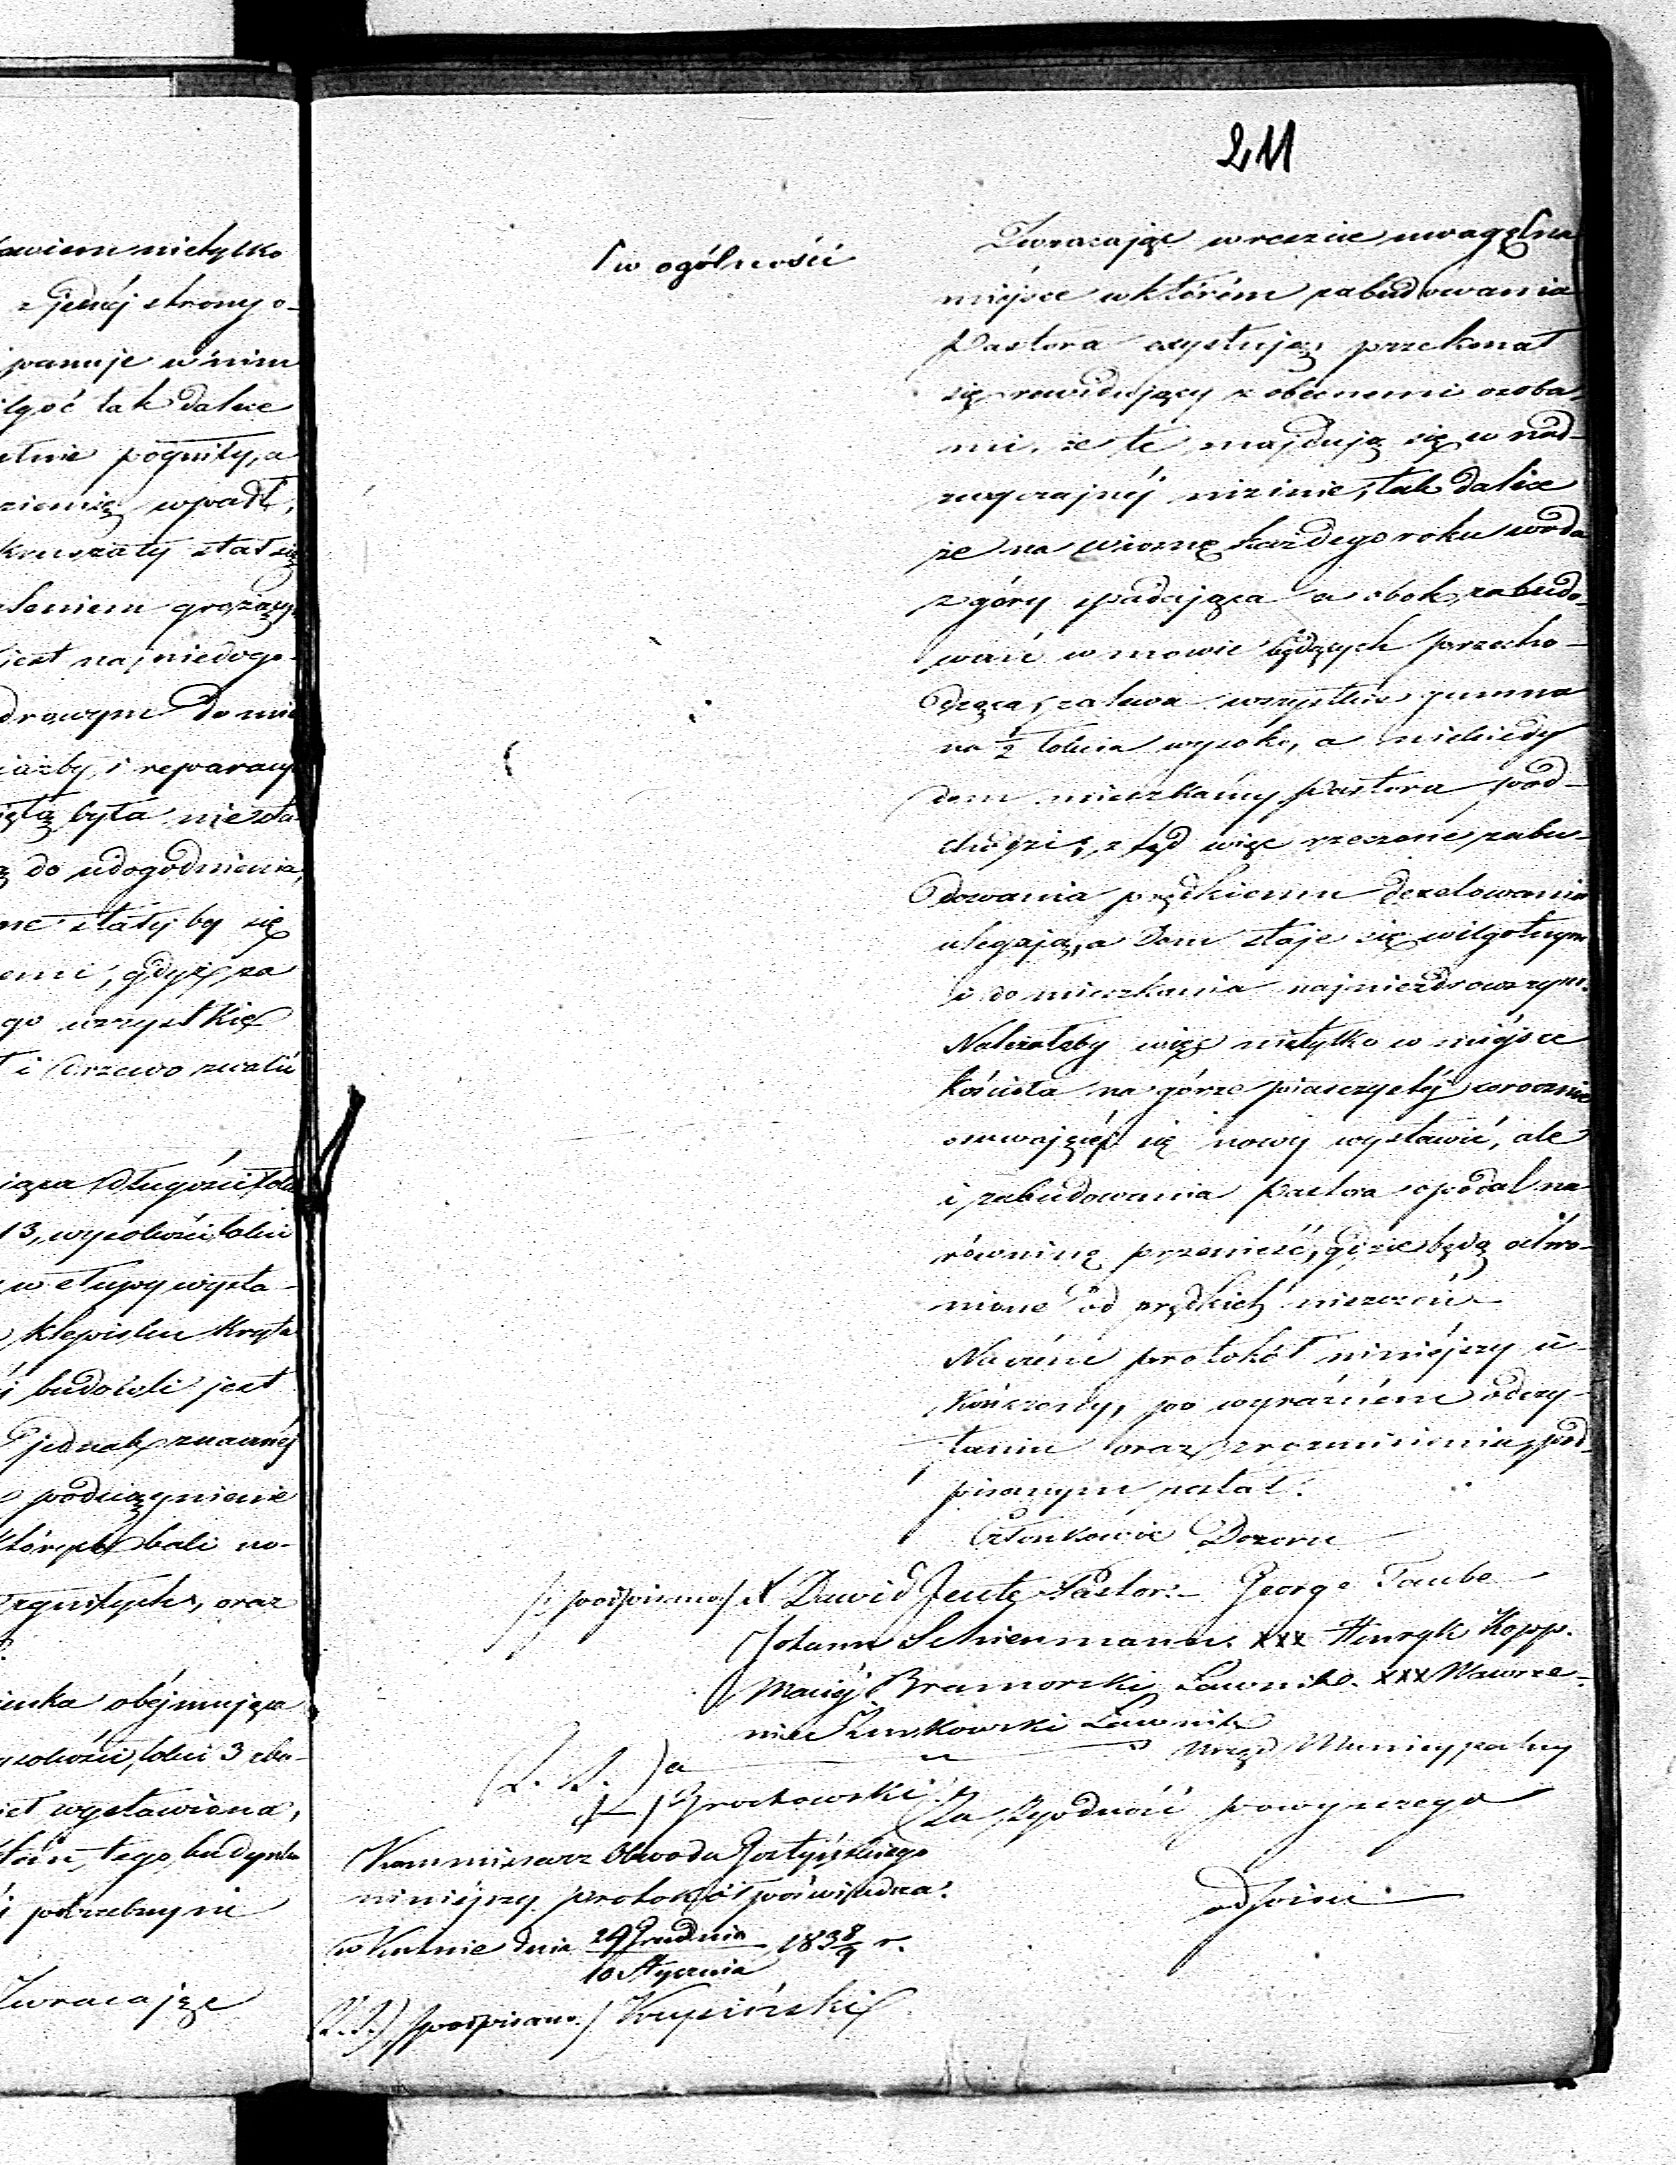 211
awiem nietylko
z jednéj strony o-
panuje w nim
ilgoć tak dalece
pogniły, a
ziemię wpadł,
kruszały stał się
leniem grożący
jest na niedogo-
drowym do mie
i reparacy
była niezda
do udogodnienia,
ne stały by się
emi, gdyż za
go wszystkie
i drzewo zwalić
długości łokci
13, wysokości łokci
w słupy wysta-
klepisku kryta
i budowli jest
jednak znacznéj
podciągnienie
których bali no-
zgniłych, oraz
obéjmująca
wysokości łokci 3 zbu-
wystawiona,
tego budynku
potrzebnymi
Zwracając
w ogólności
Zwracając wreszcie uwagę na
miéjsce w którém zabudowania
Pastora exystują, przekonał
się rewidujący z obecnemi osoba-
mi, że te znajdują się w nad-
zwyczajnéj nizinie, tak dalece
że na wiosnę każdego roku woda
z góry spadająca a obok zabudo-
wań w mowie będących przecho-
dząca, zalewa wszystkie gumna
na ½ łokcia wysoko, a niekiedy
dom mieszkalny Pastora pod-
chodzi, z tąd więc rzeczone zabu-
dowania prędkiemu dezelowaniu
ulegają, a dom staje się wilgotnym
i do mieszkania najniezdrowszym.
Należałoby więc nietylko w miéjsce
kościoła na górze piasczystéj corocznie
osuwającéj się nowy wystawić, ale
i zabudowania Pastora opodal na
równinę przenieść, gdzie będą ochro-
nione od prędkich zniszczeń.
Na czém protokół niniéjszy u-
kończony, po wyraźném odczy-
taniu oraz zrozumieniu, pod-
pisanym został.
Członkowie Dozoru
/: podpisano/ Dawid Jeute Pastor. George Taube
Johann Schienmann. xxx Henryk Kopp.
Maciéj Bramorski Ławnik. xxx Wawrze-
niec Żurkowski Ławnik
Urząd Municypalny
(L. S.)
/-/ Grochowski Za zgodność powyższego
odpisu
Kommissarz Obwodu Gostyńskiego
niniéjszy protokół poświadcza.
w Kutnie dnia 29 Grudnia / 10 Stycznia 183 8/9 r.
(L.S.) /podpisano/ Krupiński